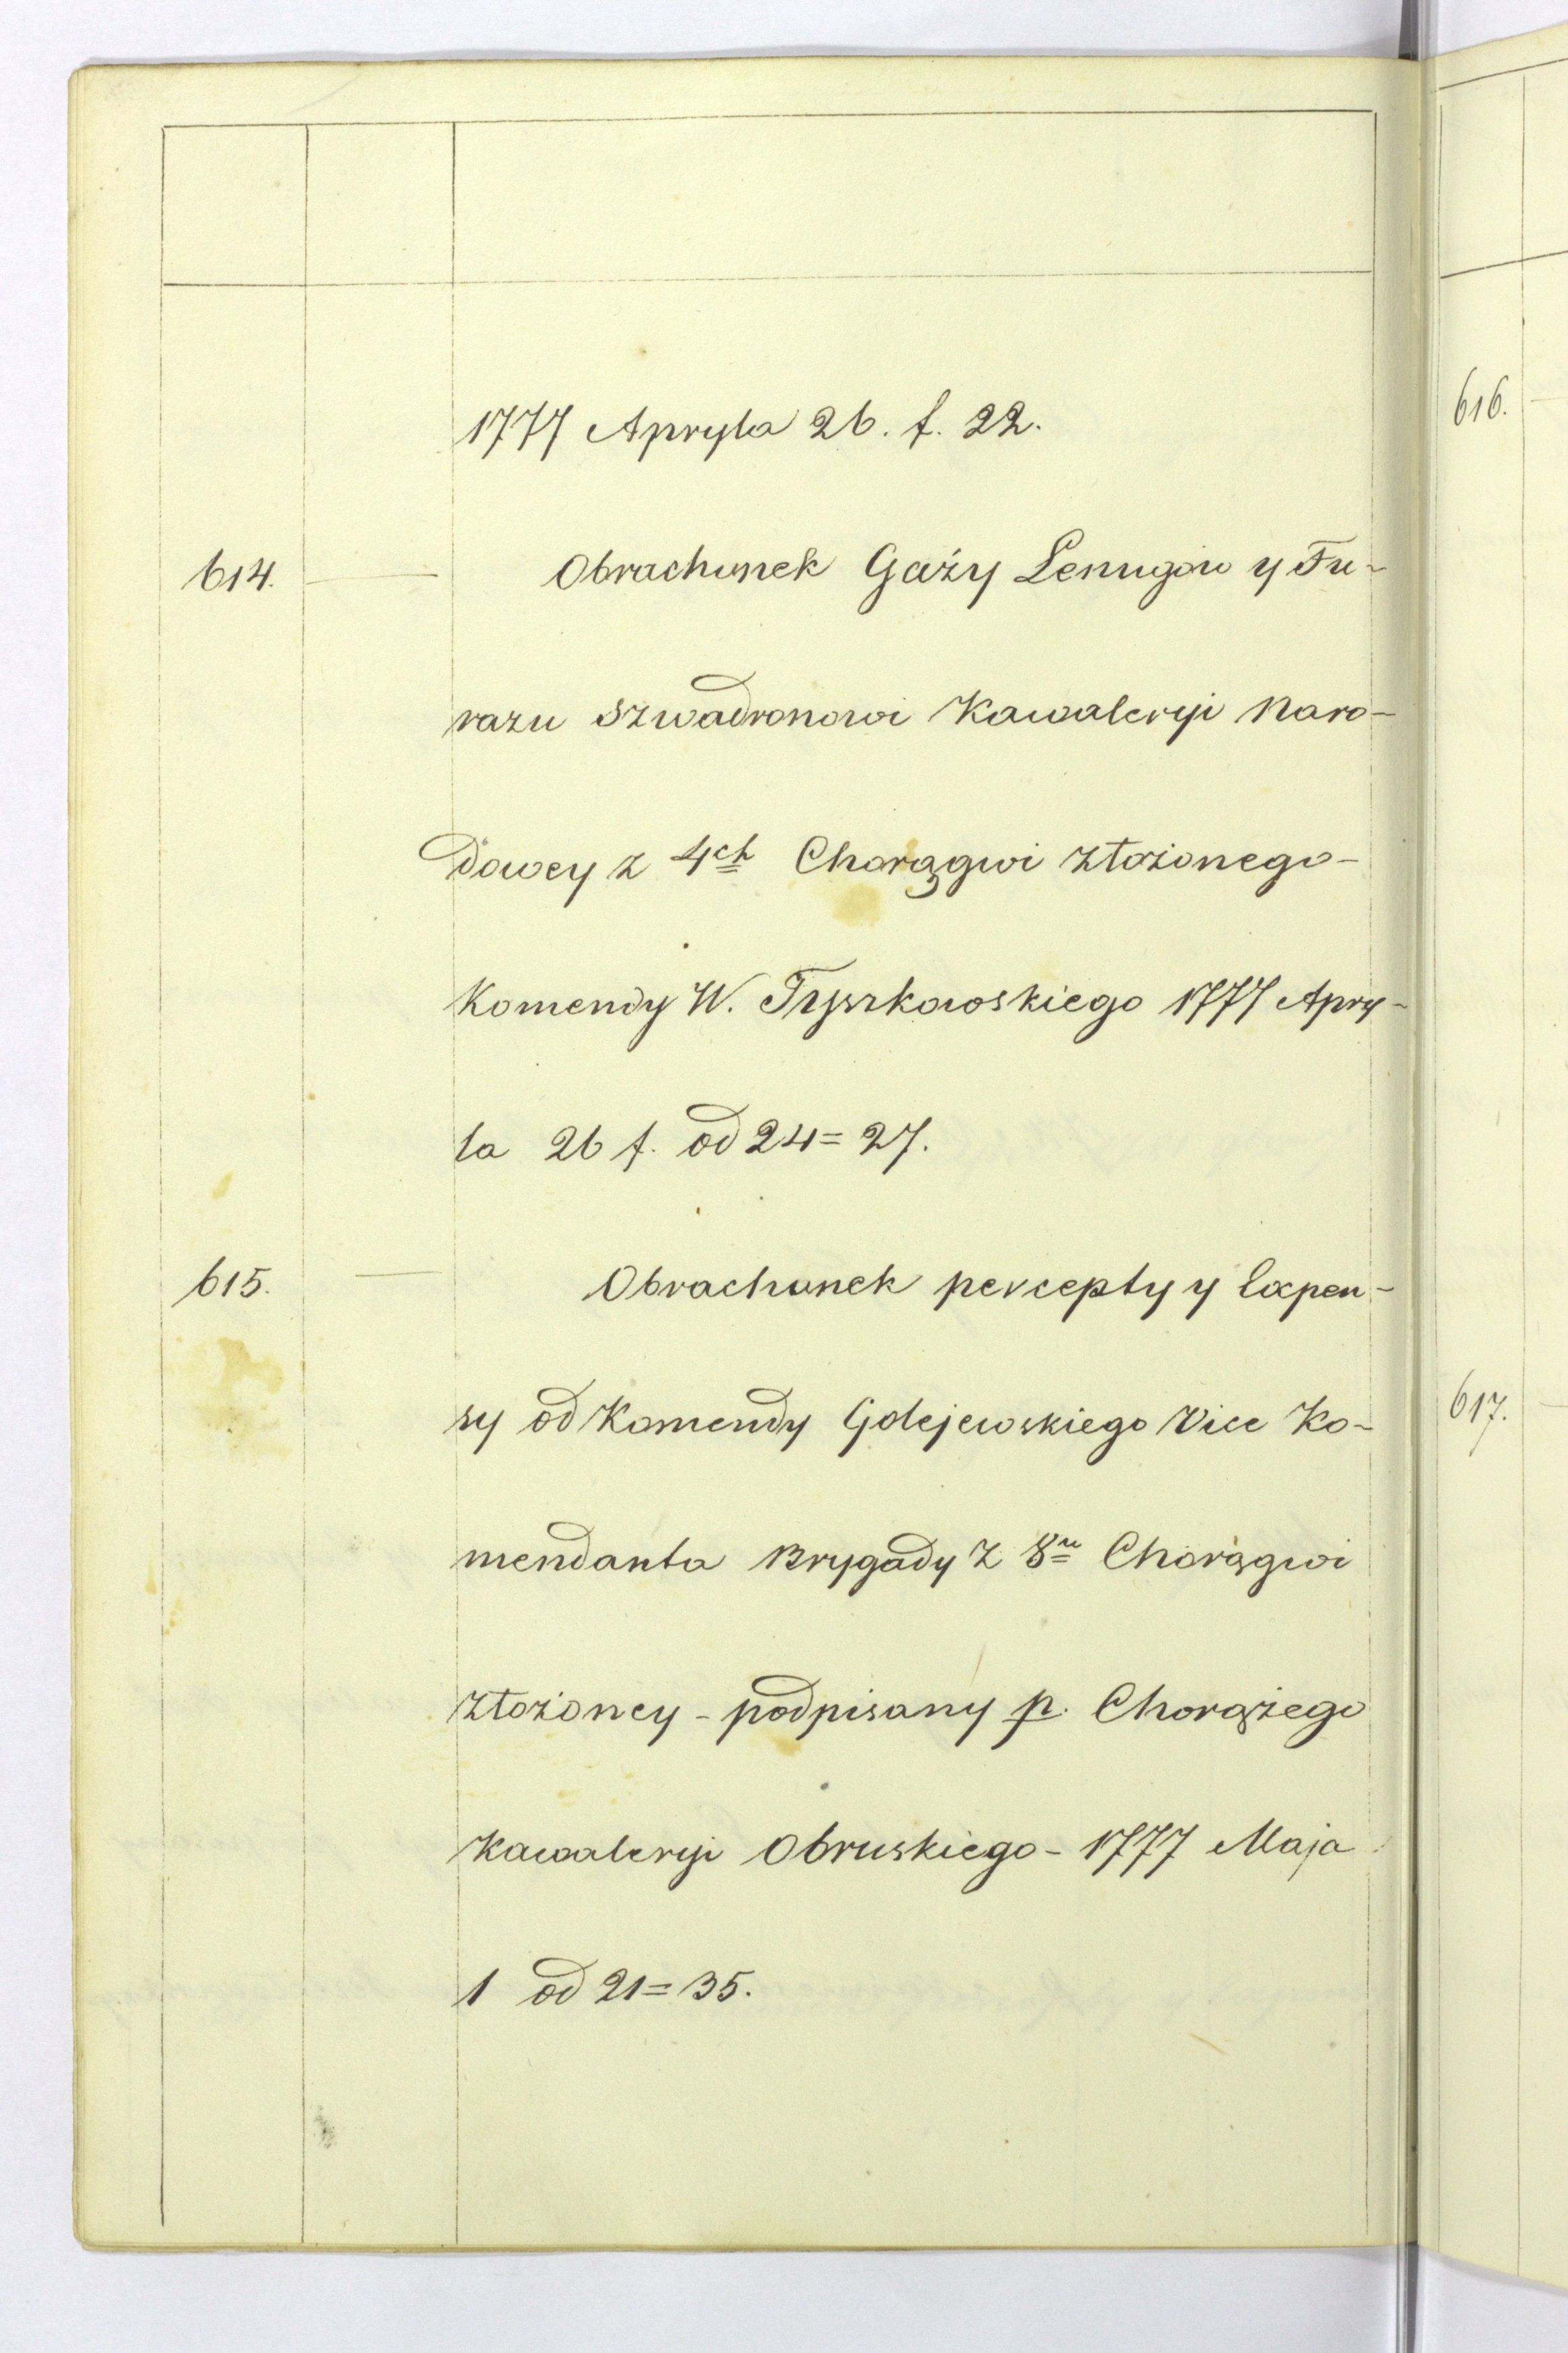 1777 Apryla 26. f. 22.
614. — Obrachunek Gaży Lenugów y Fu-
razu Szwadronowi Kawaleryi Naro-
dowey z 4ch Chorągwi złożonego-
Komendy W. Tyszkowskiego 1777 Apry-
la 26 f. od 24=27.
615. — Obrachunek percepty y Expen-
sy od Komendy Golejewskiego Vice Ko-
mendanta Brygady Z 8u Chorągwi
złożoney - podpisany p. Chorążego
Kawaleryi Obruskiego - 1777 Maja
1 od 21=35.
616.
617.